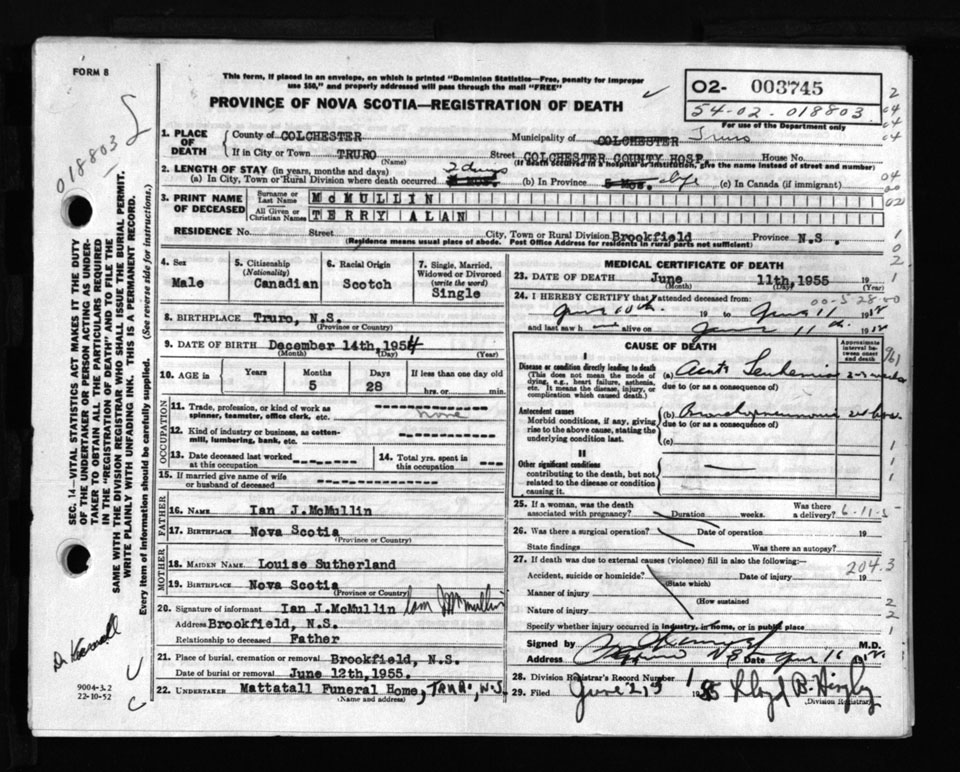 FORM 8
This form, if placed in an envelope, on which is printed "Dominion Statistics—Free, penalty for improper
use $50," and properly addressed will pass through the mail "FREE"
PROVINCE OF NOVA SCOTIA—REGISTRATION OF DEATH
02- 003745
54-02-018803
For use of the Department only
018803
1. PLACE OF DEATH
County of COLCHESTER Municipality of COLCHESTER Truro
If in City or Town TRURO Street COLCHESTER COUNTY HOSP. House No.
(Name) (If death occurred in a hospital or institution, give the name instead of street and number)
2. LENGTH OF STAY (in years, months and days)
(a) In City, Town or Rural Division where death occurred 2 days (b) In Province 5 MOS. life (c) In Canada (if immigrant)
3. PRINT NAME OF DECEASED
Surname or Last Name McMULLIN
All Given or Christian Names TERRY ALAN
RESIDENCE No. Street City, Town or Rural Division Brookfield Province N.S.
(Residence means usual place of abode. Post Office Address for residents in rural parts not sufficient)
4. Sex Male
5. Citizenship (Nationality) Canadian
6. Racial Origin Scotch
7. Single, Married, Widowed or Divorced (write the word) Single
8. BIRTHPLACE Truro, N.S.
(Province or Country)
9. DATE OF BIRTH December 14th, 1954
(Month) (Day) (Year)
10. AGE in Years Months 5 Days 28 If less than one day old hrs. or min.
OCCUPATION
11. Trade, profession, or kind of work as spinner, teamster, office clerk, etc. none
12. Kind of industry or business, as cotton-mill, lumbering, bank, etc.
13. Date deceased last worked at this occupation
14. Total yrs. spent in this occupation
15. If married give name of wife or husband of deceased
FATHER
16. NAME Ian J. McMullin
17. BIRTHPLACE Nova Scotia
(Province or Country)
MOTHER
18. MAIDEN NAME Louise Sutherland
19. BIRTHPLACE Nova Scotia
(Province or Country)
20. Signature of informant Ian J. McMullin Ian J McMullin
Address Brookfield, N.S.
Relationship to deceased Father
21. Place of burial, cremation or removal Brookfield, N.S.
Date of burial or removal June 12th, 1955.
22. UNDERTAKER Mattatall Funeral Home, TRURO, N.S.
(Name and address)
MEDICAL CERTIFICATE OF DEATH
23. DATE OF DEATH June 11th, 1955 19
(Month) (Day) (Year)
24. I HEREBY CERTIFY that I attended deceased from:
00-5-28-00
June 10th 19 to June 11 19
and last saw h alive on June 11th 19
CAUSE OF DEATH
Approximate interval between onset and death
I
Disease or condition directly leading to death
(This does not mean the mode of dying, e.g., heart failure, asthenia, etc. It means the disease, injury, or complication which caused death.)
(a) Acute Leukemia 2-3 weeks
due to (or as a consequence of)
Antecedent causes
Morbid conditions, if any, giving rise to the above cause, stating the underlying condition last.
(b) Bronchopneumonia
due to (or as a consequence of)
(c)
II
Other significant conditions
contributing to the death, but not related to the disease or condition causing it.
25. If a woman, was the death associated with pregnancy? Duration weeks. Was there a delivery?
26. Was there a surgical operation? Date of operation 19
State findings Was there an autopsy?
27. If death was due to external causes (violence) fill in also the following:-
204.3
Accident, suicide or homicide? Date of injury 19
(State which)
Manner of injury
(How sustained
Nature of injury
Specify whether injury occurred in industry, in home, or in public place
Signed by M.D.
Address Truro NS Date June 11 19
28. Division Registrar's Record Number
29. Filed June 21 1955 Lloyd B.
(Division Registrar)
SEC. 14—VITAL STATISTICS ACT MAKES IT THE DUTY
OF THE UNDERTAKER OR PERSON ACTING AS UNDER-
TAKER TO OBTAIN ALL THE PARTICULARS REQUIRED
IN THE "REGISTRATION OF DEATH" AND TO FILE THE
SAME WITH THE DIVISION REGISTRAR WHO SHALL ISSUE THE BURIAL PERMIT.
WRITE PLAINLY WITH UNFADING INK. THIS IS A PERMANENT RECORD.
Every item of information should be carefully supplied. (See reverse side for instructions.)
9004-3.2
22-10-52